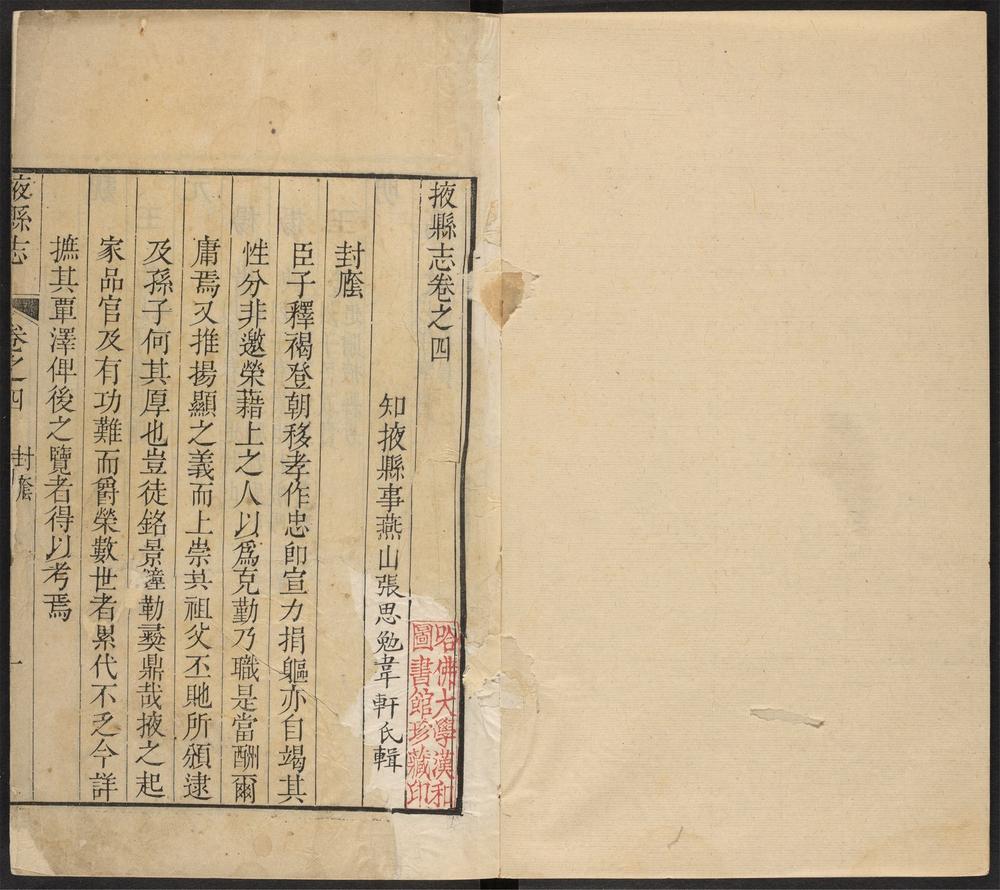 掖縣志卷之四
知掖縣事燕山張思勉葦軒氏輯
封廕
臣子釋褐登朝移孝作忠卽宣力捐軀亦自竭其
性分非邀榮藉上之人以爲克勤乃職是當酬爾
庸焉又推揚顯之義而上崇其祖父丕貤所頒逮
及孫子何其厚也豈徒銘景鐘勒彝鼎哉掖之起
家品官及有功難而爵榮數世者累代不乏今詳
摭其覃澤俾後之覽者得以考焉
掖縣志
卷之四
封廕
一
哈佛大學漢和
圖書館珍藏印